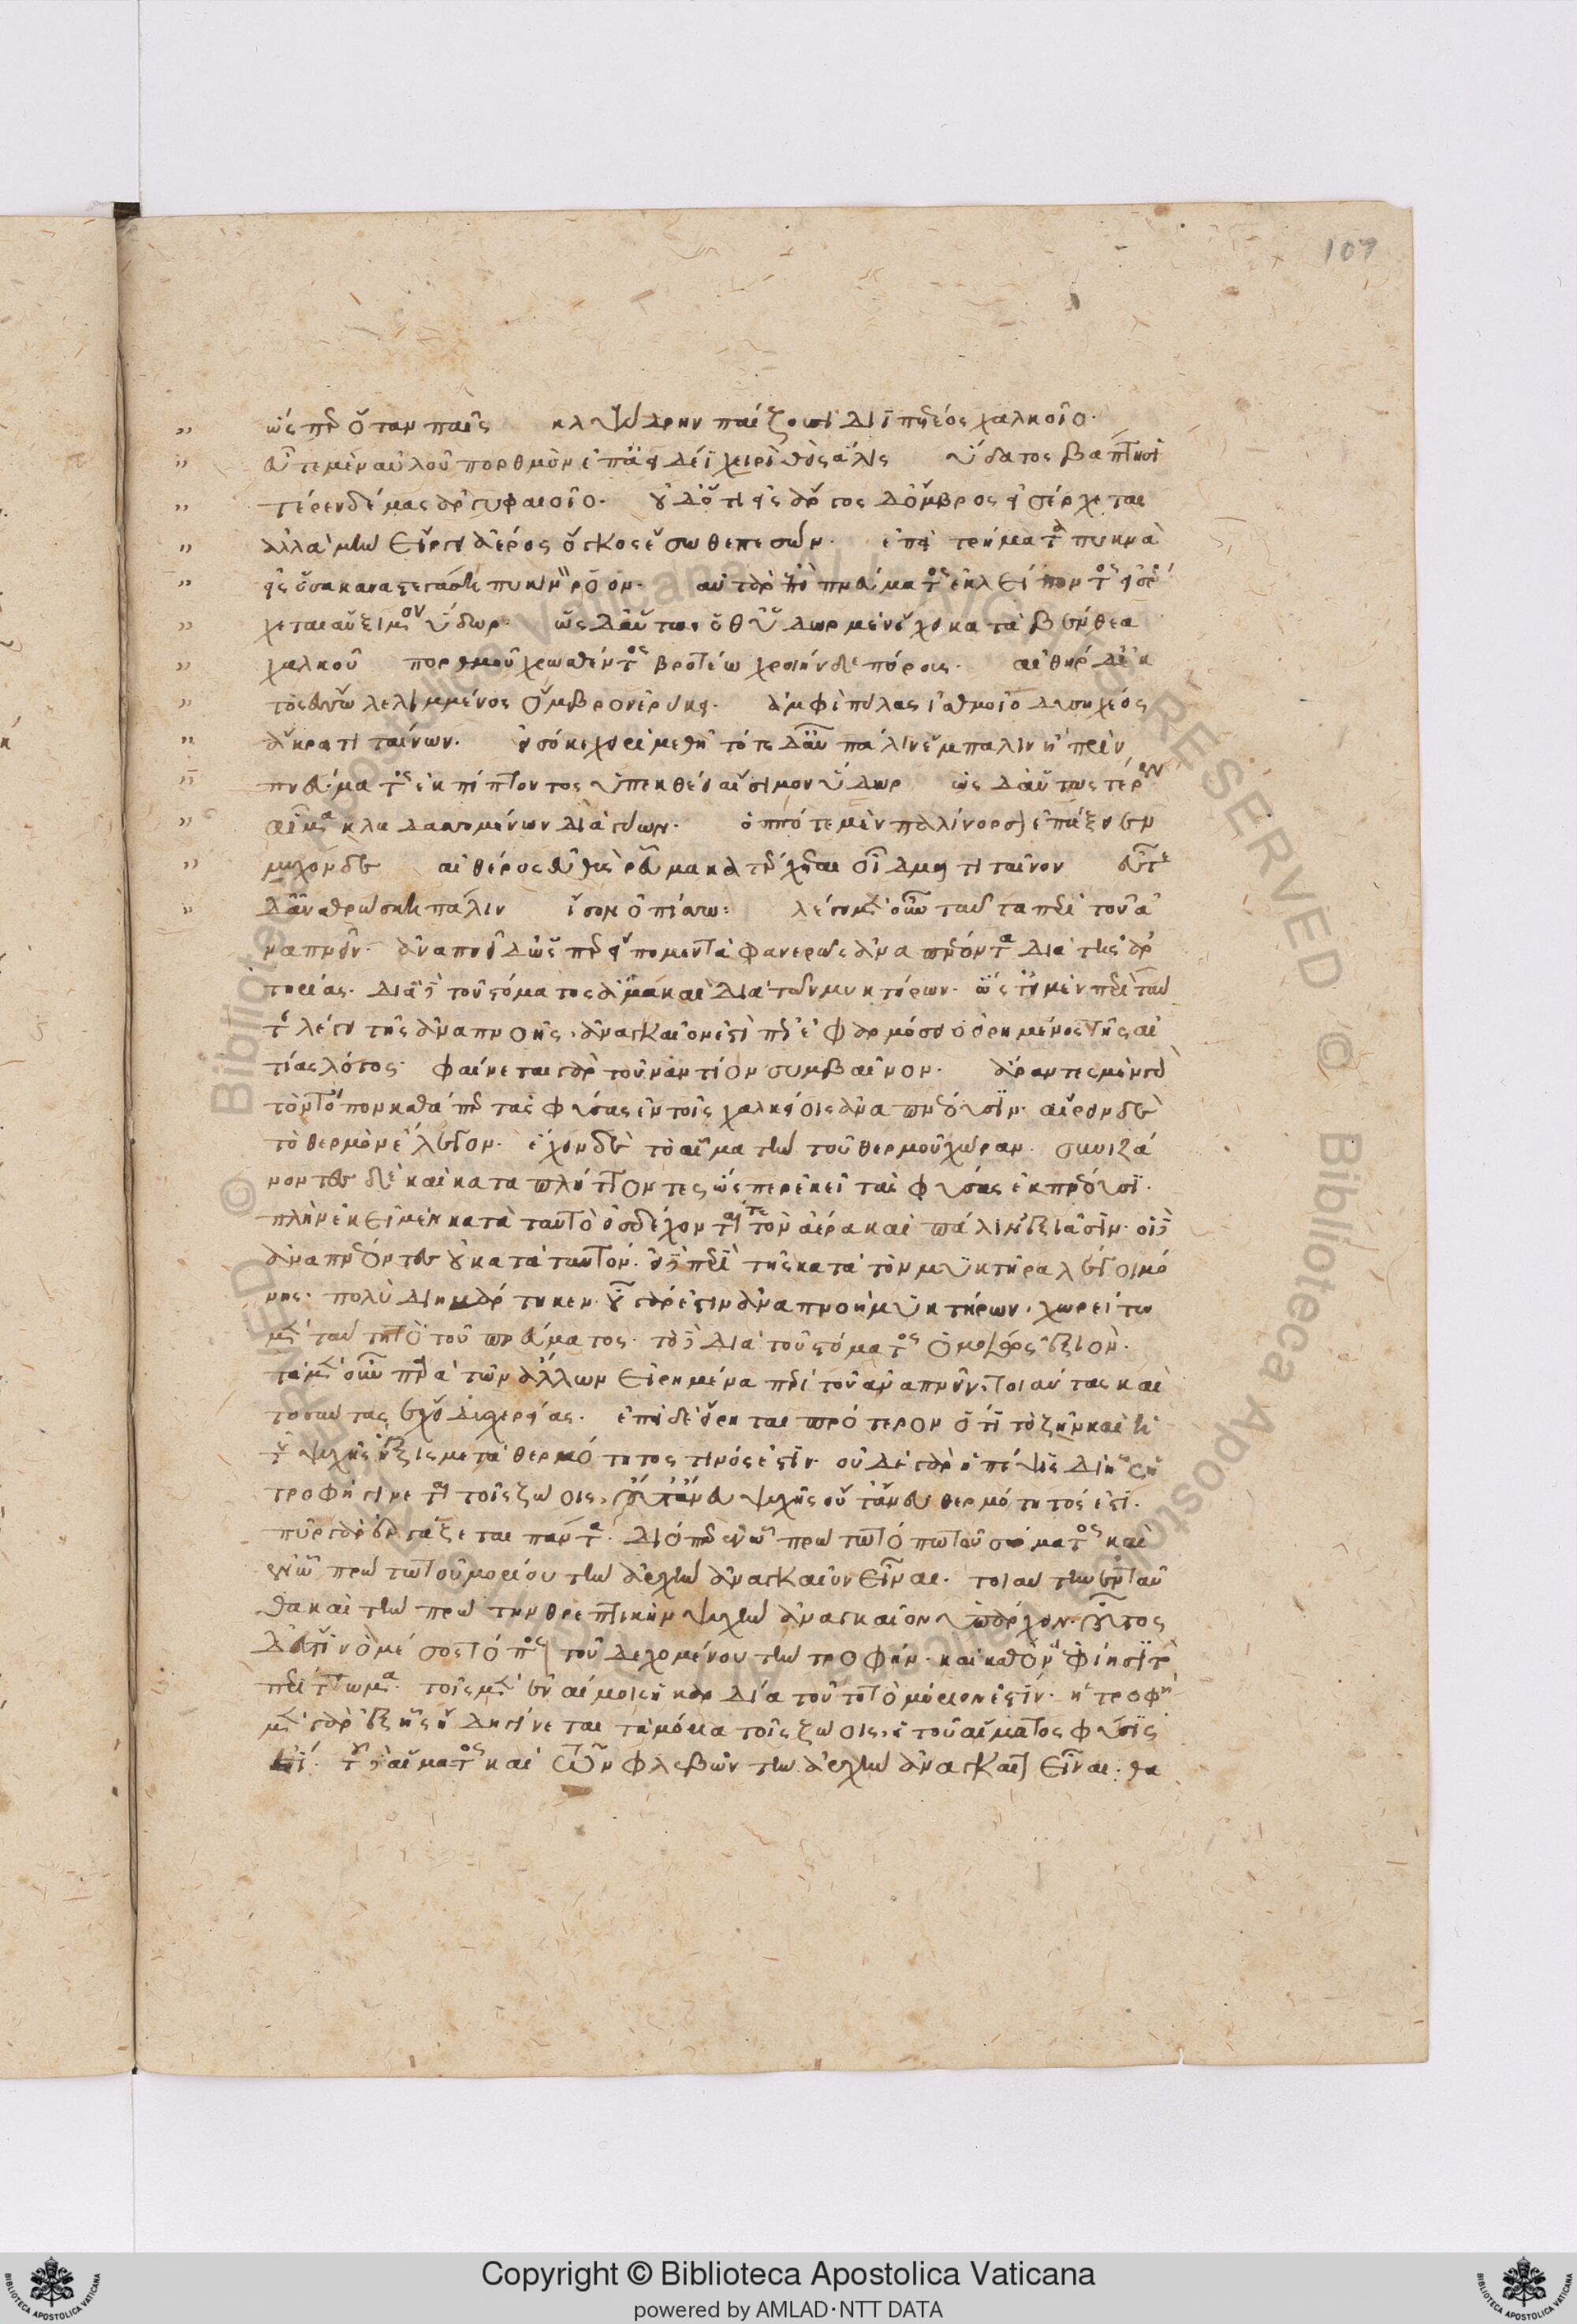 107
ὥσπερ ὅταν παῖς κλεψύδρην παίζουσι διιπετέος χαλκοῖο·
εὖτε μὲν αὐλοῦ πορθμὸν ἐπ' εὐειδέϊ χειρὶ θεὶς ὕδατος βάπτησι
τέρεν δέμας ἀργυφαιοῖο· οὐδ' ὅτι εἰς ἄγγος δ' ὄμβρος εἰσέρχεται
ἀλλά μιν εἴργει ἀέρος ὄγκος ἔσωθε πεσών· ἐπὶ τρήματα πυκνὰ
πυκινὸν ῥόον· αὐτὰρ πνεύματος ἐκλείποντος ἐσέρ
χεται αὔξιμον ὕδωρ· ὣς δ' αὕτως ὅθ' ὕδωρ μὲν ἔχει κατὰ βένθεα
χαλκοῦ πορθμοῦ χωσθέντος βροτέω χροῒ ἠδὲ πόροιο· αἰθὴρ δ' ἐκ
τὸς ἔσω λελιμμένος ὄμβρον ἐρύκει· ἀμφὶ πύλας ἰσθμοῖο δυσηχέος
ἄκρα τιταίνων· εἰσόκε χειρὶ μεθῇ τότε δ' αὖ πάλιν ἔμπαλιν ἢ πρὶν
πνεύματος ἐκπίπτοντος ὑπεκθέει αἴσιμον ὕδωρ ὣς δ' αὕτως τέρεν
αἷμα κλαδασσομένων διὰ γυίων· ὁππότε μὲν παλίνορσον ἐπαΐξειεν
μυχόνδε αἰθέρος εὐθὺς ῥεῦμα κατέρχεται οἴδματι τιταῖνον εὖτε
δ' ἀναθρώσκῃ πάλιν ἴσον ὀπίσσω: λέγει μὲν οὖν ταῦτα περὶ τοῦ ἀ
ναπνεῖν· ἀναπνεῖ δ' ὥσπερ εἴπομεν τὰ φανερῶς ἀναπνέοντα διὰ τῆς ἀρ
τηρίας· διά τε τοῦ στόματος ἅμα καὶ διὰ τῶν μυκτήρων· ὥστ' εἰ μὲν περὶ ταύ
της λέγει τῆς ἀναπνοῆς· ἀναγκαῖόν ἐστι ἐφαρμόσει ὁ εἰρημένος τῆς αἰ
τίας λόγος· φαίνεται γὰρ τοὐναντίον συμβαῖνον· ἄραντες μὲν γὰρ
τὸν τόπον καθάπερ τὰς φύσας ἐν τοῖς χαλκείοις ἀναπνέουσιν· αἴρειν δὲ
τὸ θερμὸν εὔλογον· ἔχειν δὲ τὸ αἷμα τὴν τοῦ θερμοῦ χώραν· συνιζά
νοντες δὲ καὶ καταπλήττοντες ὥσπερ ἐκεῖ τὰς φύσας ἐκπνέουσι·
πλὴν ἐκεῖ μὲν κατὰ ταὐτὸ εἰσδέχονταί τε τὸν ἀέρα καὶ πάλιν ἐξιᾶσιν· οἱ δὲ
ἀναπνέοντες οὐ κατὰ ταὐτόν· εἰ δὲ περὶ τῆς κατὰ τὸν μυκτῆρα λέγει μό
νης· πολὺ διημάρτηκεν· οὐ γάρ ἐστιν ἀναπνοὴ μυκτήρων·
τοῦ πνεύματος· τὸ δὲ διὰ τοῦ στόματος ὁμοίως ἐξιόν·
τὰ μὲν οὖν παρὰ τῶν ἄλλων εἰρημένα περὶ τοῦ ἀναπνεῖν· τοιαύτας καὶ
τοσαύτας ἔχει δυσχερείας· ἐπεὶ δὲ εἴρηται πρότερον ὅτι τὸ ζῆν καὶ ἡ
τῆς ψυχῆς ἕξις μετὰ θερμότητός τινός ἐστιν· οὐδὲ γὰρ ἡ πέψις δι' ἧς ἡ
τροφὴ γίνεται τοῖς ζῴοις, οὔτ' ἄνευ ψυχῆς οὔτ' ἄνευ θερμότητός ἐστι·
πυρὶ γὰρ ἐργάζεται πάντα· διόπερ ἐν ᾧ πρώτῳ τόπῳ τοῦ σώματος καὶ
ἐν ᾧ πρώτῳ τοῦ μορίου τὴν ἀρχὴν ἀναγκαῖον εἶναι· τοιαύτην ἐνταῦ
θα καὶ τὴν πρώτην θρεπτικὴν ψυχὴν ἀναγκαῖον ὑπάρχειν· οὗτος
δ' ἐστὶν ὁ μέσος τόπος τοῦ δεχομένου τὴν τροφήν· καὶ καθ' ὃν ἀφίησι τὸ
περίττωμα· τοῖς μὲν ἐναίμοις ἡ καρδία τοῦτο τὸ μόριόν ἐστιν· ἡ τροφὴ
μὲν γὰρ ἐξ ἧς ἤδη γίνεται τὰ μόρια τοῖς ζῴοις, ἡ τοῦ αἵματος φύσις
ἐστί· τοῦ δ' αἵματος καὶ τῶν φλεβῶν τὴν ἀρχὴν ἀναγκαῖον εἶναι· θα
Copyright © Biblioteca Apostolica Vaticana
powered by AMLAD·NTT DATA